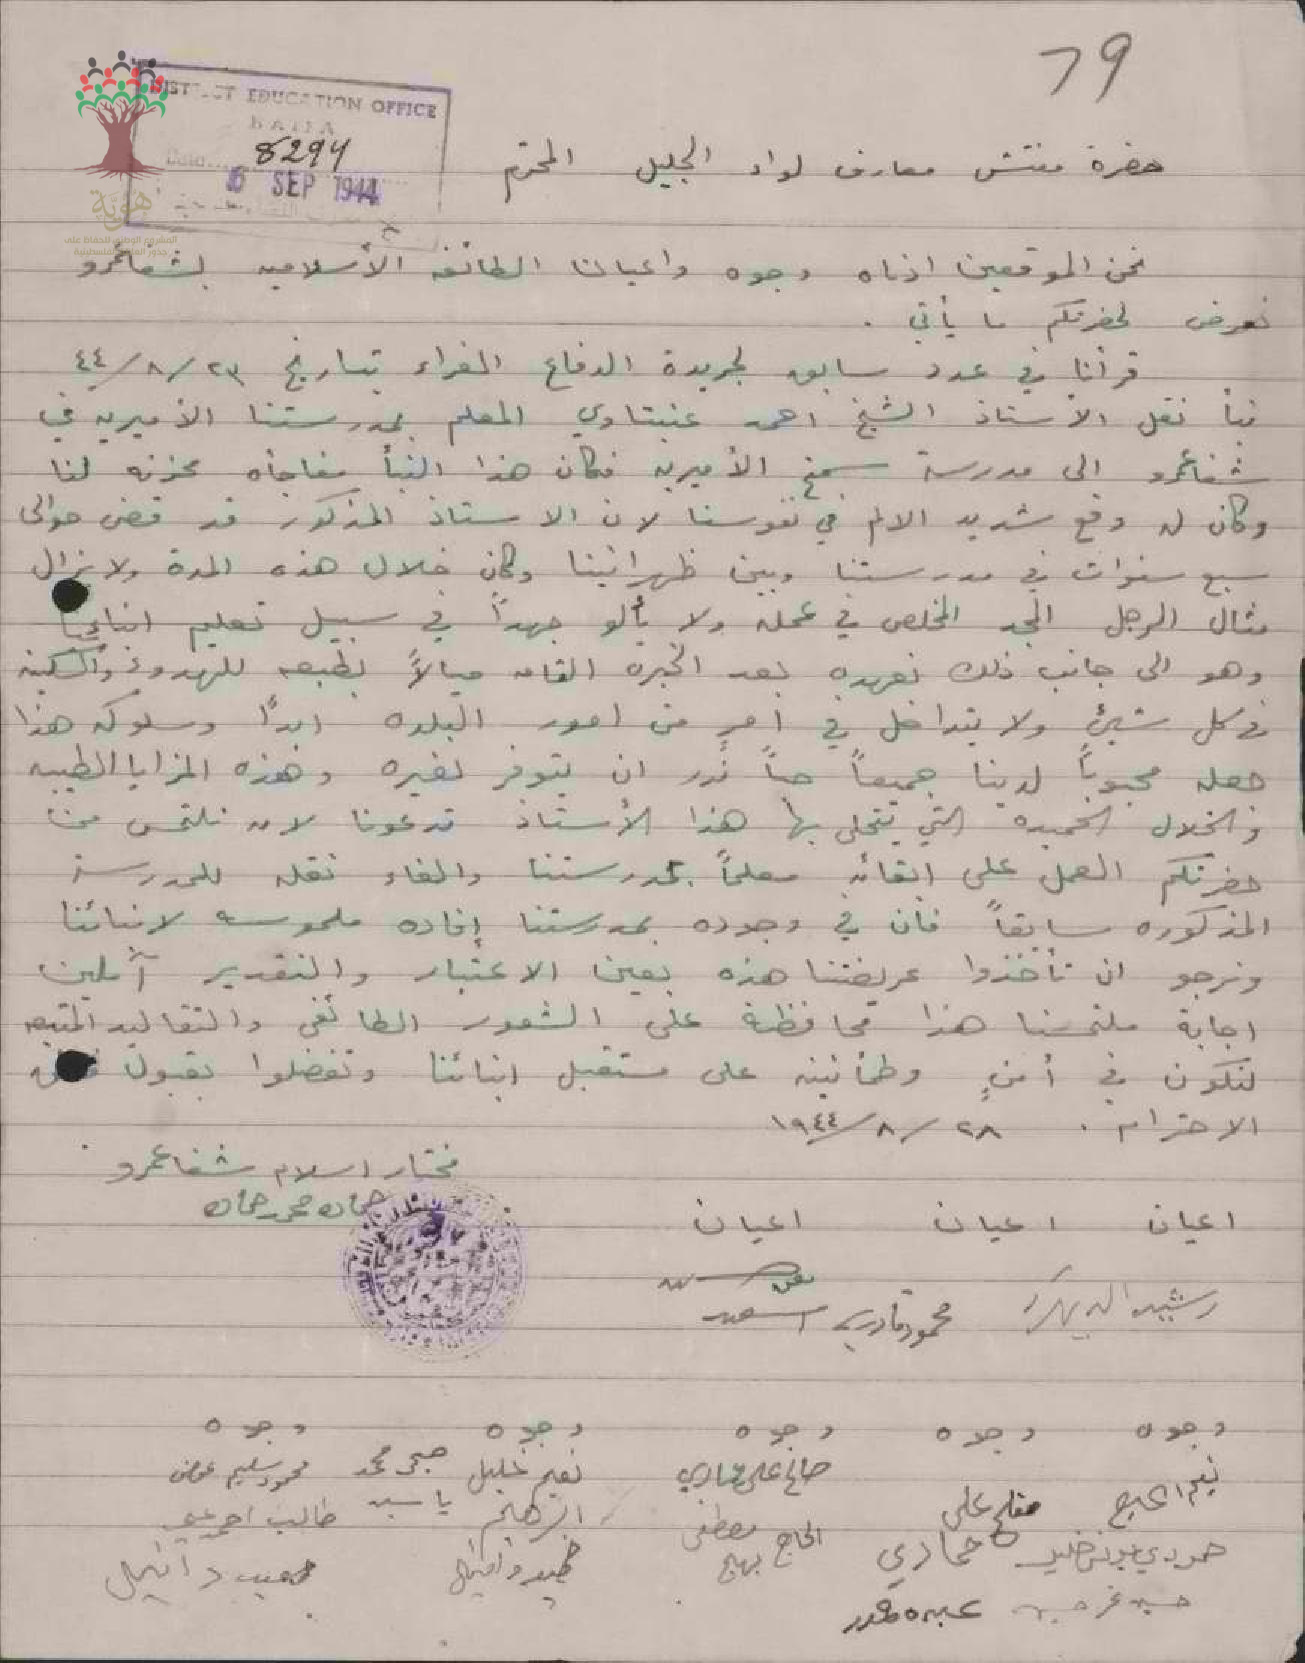 79
DISTRICT EDUCATION OFFICE
HAIFA
Date
8294
6 SEP 1944
هوية
المشروع الوطني للحفاظ على
جذور العائلة الفلسطينية
حضرة مفتش معارف لواء الجليل المحترم
نحن الموقعين ادناه وجوه واعيان الطائفه الأسلاميه بشفاعمرو
نعرض لحضرتكم ما يأتي .
قرأنا في عدد سابق لجريدة الدفاع الغراء بتاريخ ٢٣/٨/٤٤
نبأ نقل الأستاذ الشيخ احمد عنبتاوي المعلم بمدرستنا الأميريه في
شفاعمرو الى مدرسة سمخ الأميريه فكان هذا النبأ مفاجأه محزنه لنا
وكان له وقع شديد الالم في نفوسنا لان الاستاذ المذكور قد قضى حوالى
سبع سنوات في مدرستنا وبين ظهرانينا وكان خلال هذه المدة ولا يزال
مثال الرجل المجد المخلص في عمله ولا يألو جهداً في سبيل تعليم ابنائنا
وهو الى جانب ذلك نعهده بعد الخبره التامه ميالاً بطبعه للهدوء والسكينه
في كل شيئ ولا يتداخل في امر من امور البلده ابداً وسلوكه هذا
جعله محبوباً لدينا جميعاً حباً ندر ان يتوفر لغيره وهذه المزايا الطيبه
والخلال الحميده التي يتحلى بها هذا الأستاذ تدعونا لان نلتمس من
حضرتكم العمل على ابقائه معلماً بمدرستنا والغاء نقله للمدرسة
المذكوره سابقاً فان في وجوده بمدرستنا إفاده ملموسه لابنائنا
ونرجو ان تأخذوا عريضتنا هذه بعين الاعتبار والتقدير آملين
اجابة ملتمسنا هذا محافظة على الشعور الطائفي والتقاليد المتبعه
لنكون في أمنٍ وطمأنينه على مستقبل ابنائنا وتفضلوا بقبول
الاحترام . ٢٨/٨/١٩٤٤
مختار اسلام شفاعمرو
اعيان اعيان اعيان
رشيد
محمود قادريه
اسعد
وجوه وجوه وجوه وجوه وجوه
نعيم خليل
ابراهيم
صبحي محمد
ياسين
محمود سليم عوض
طالب احمد
صالح علي حمادي
الحاج مصطفى
بهيج
مفلح علي
حمادي
عبده محمد